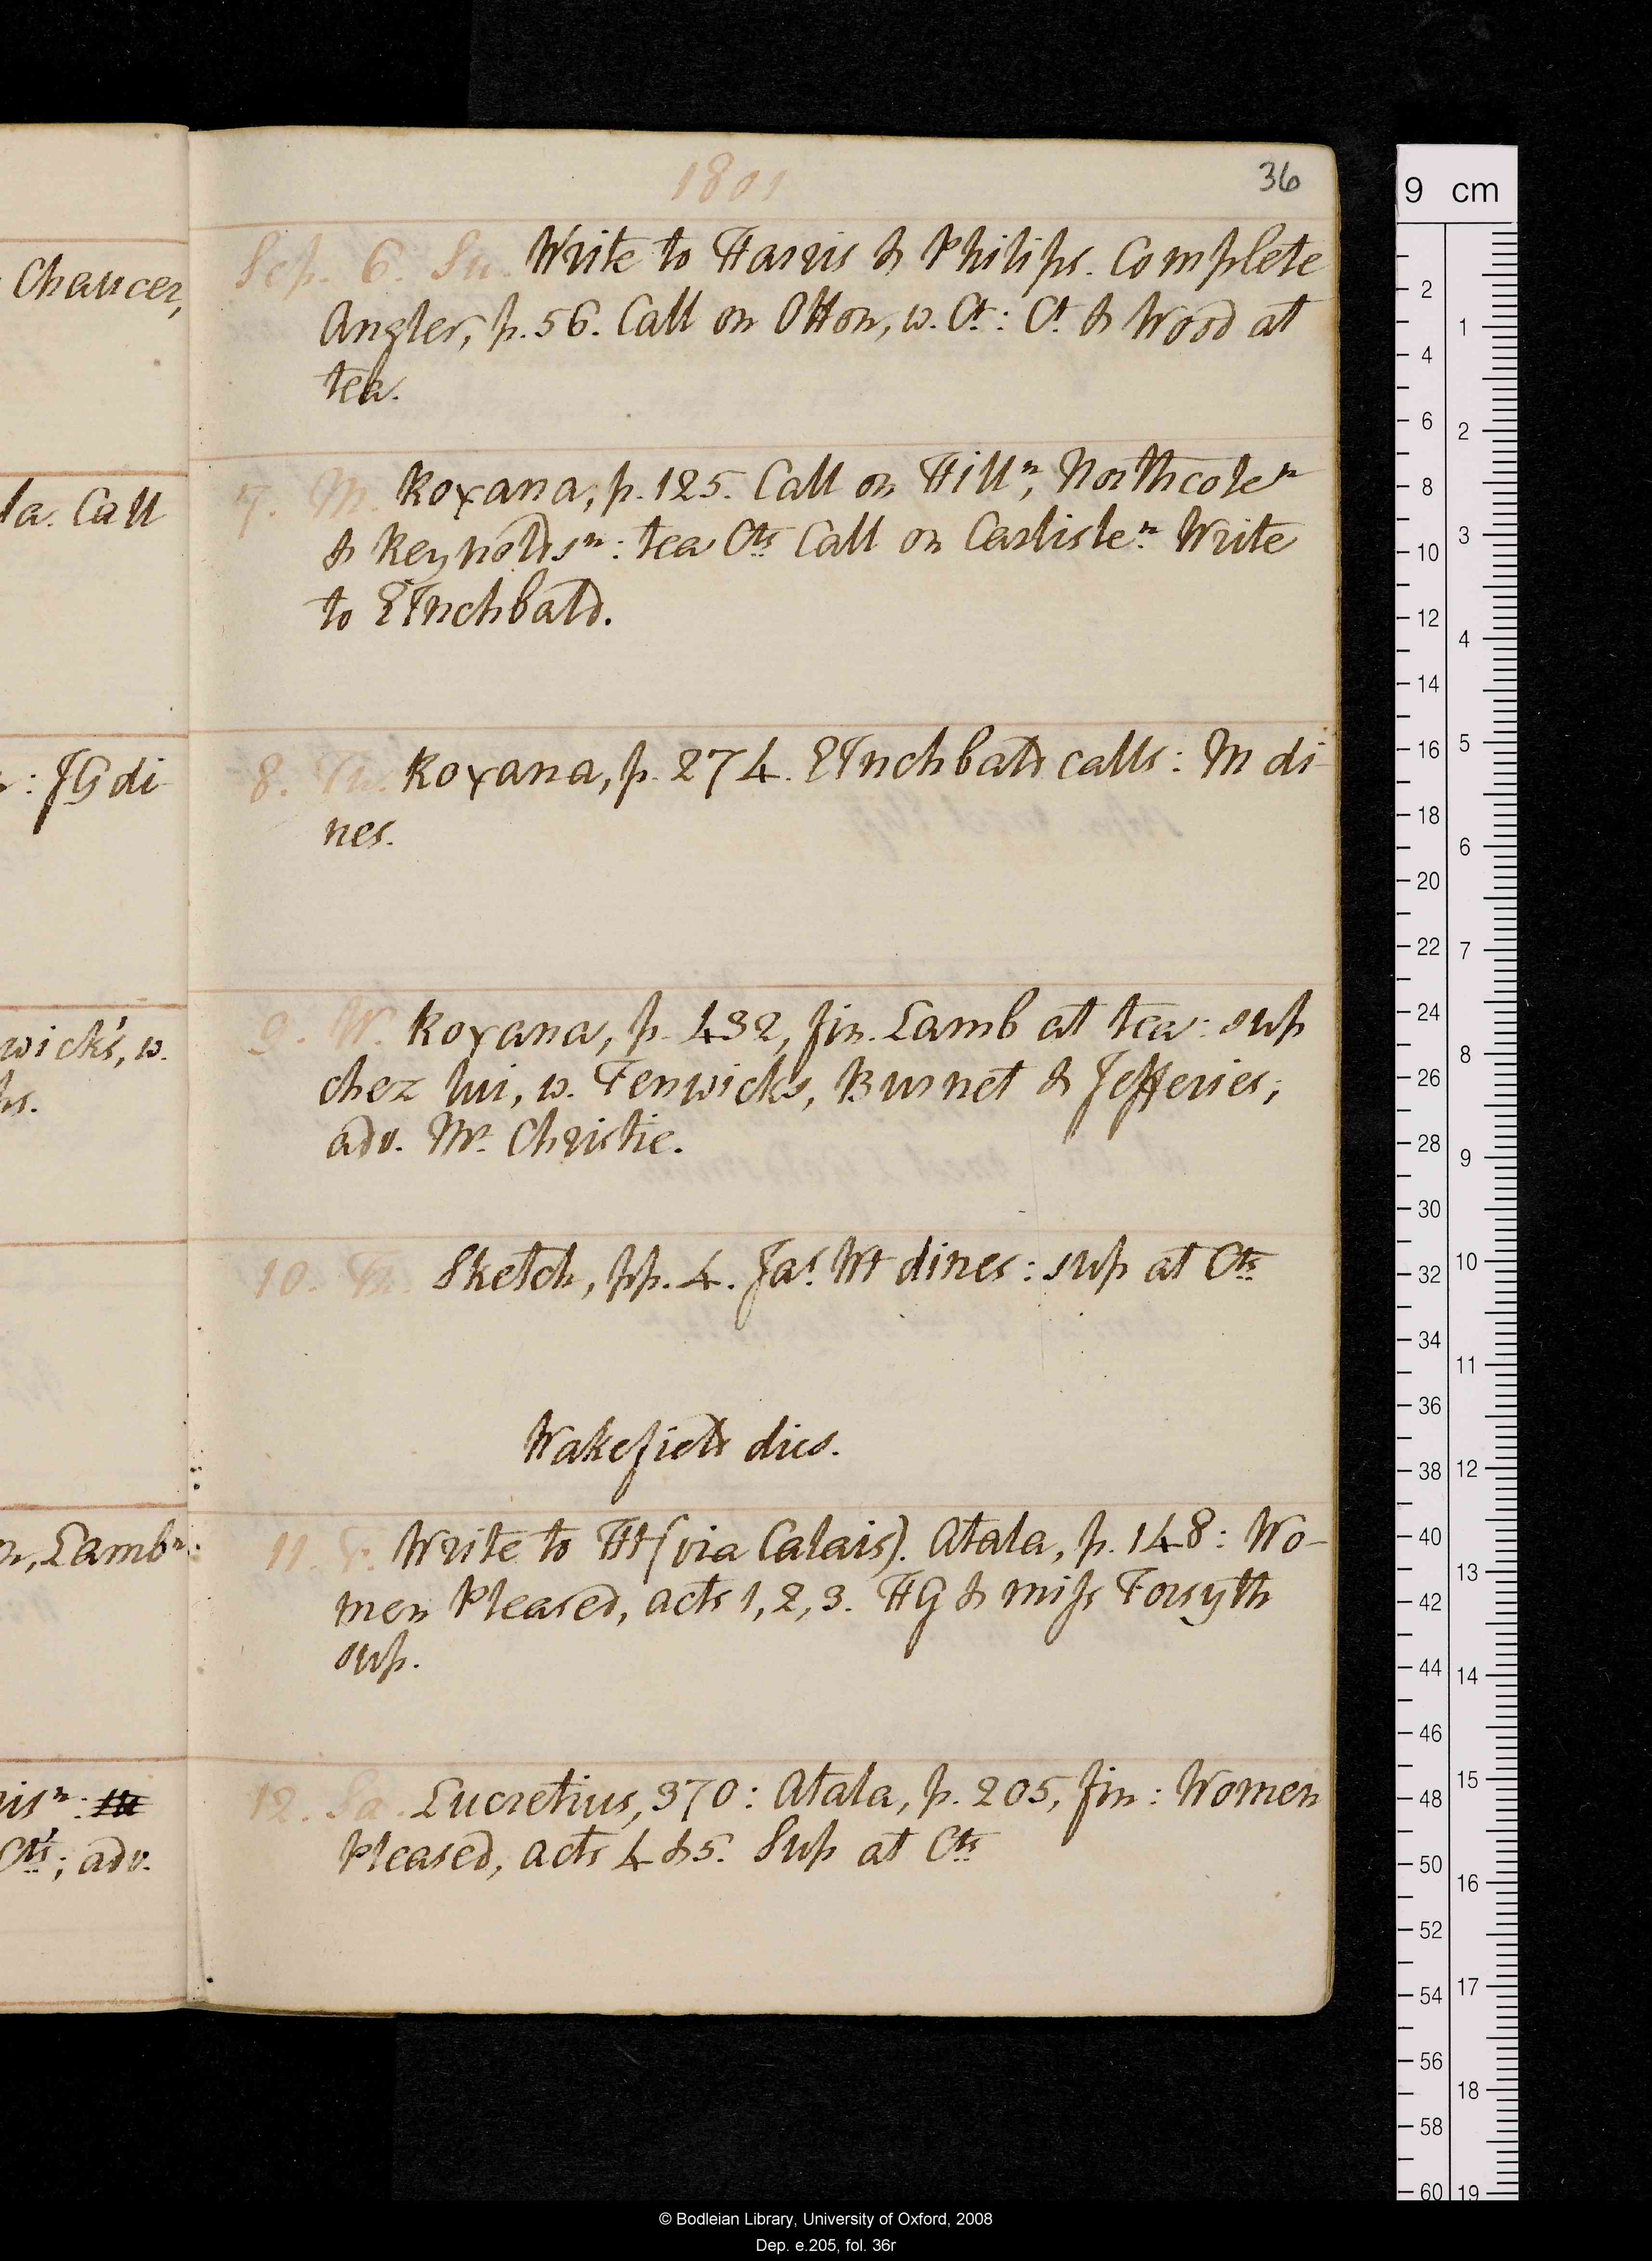 1801
36
Sep. 6. Su. Write to Harris & Philips. Complete
Angler, p. 56. Call on Otton, w. Ct: Ct & Wood at
tea.
7. M. Roxana, p. 125. Call on Hill n, Northcote n
& Reynolds n: tea Cts Call on Carlisle n Write
to EInchbald.
8. Tu. Roxana, p. 274. EInchbald calls: M di-
nes.
9. W. Roxana, p. 432, fin. Lamb at tea: sup
chez lui, w. Fenwicks, Burnet & Jefferies;
adv. Mr. Christie.
10. Th. Sketch, pp. 4. Jas Wt dines: sup at Cts
Wakefield dies.
11. F. Write to Ht (via Calais). Atala, p. 148: Wo-
men Pleased, acts 1, 2, 3. HG & miss Forsyth
sup.
12. Sa. Lucretius, 370: Atala, p. 205, fin: Women
Pleased, acts 4 & 5. Sup at Cts
Chaucer,
la. Call
: JG di
wick's, w.
hs.
n, Lamb n:
is n:
Cts'; adv.
9 cm
2
4
6
8
10
12
14
16
18
20
22
24
26
28
30
32
34
36
38
40
42
44
46
48
50
52
54
56
58
60
1
2
3
4
5
6
7
8
9
10
11
12
13
14
15
16
17
18
19
© Bodleian Library, University of Oxford, 2008
Dep. e.205, fol. 36r